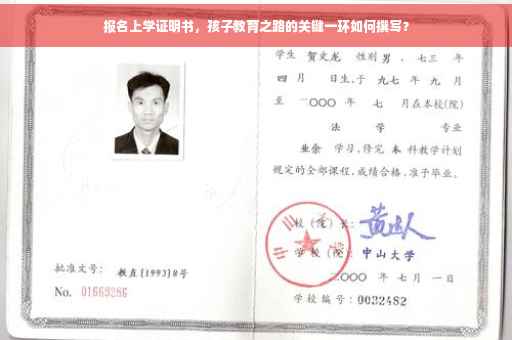 报名上学证明书，孩子教育之路的关键一环如何撰写？
学生 贺文龙 性别 男，七三 年
四 月 日生，于 九七 年 九 月
至 二〇〇〇 年 七 月在本校(院)
法 学 专业
业余 学习，修完 本 科教学计划
规定的全部课程，成绩合格，准予毕业。
校 (院) 长：
学 校 (院)：中山大学
二〇〇〇 年 七 月 一 日
学校编号：0032482
批准文号：教直[1993]8号
No. 01669286